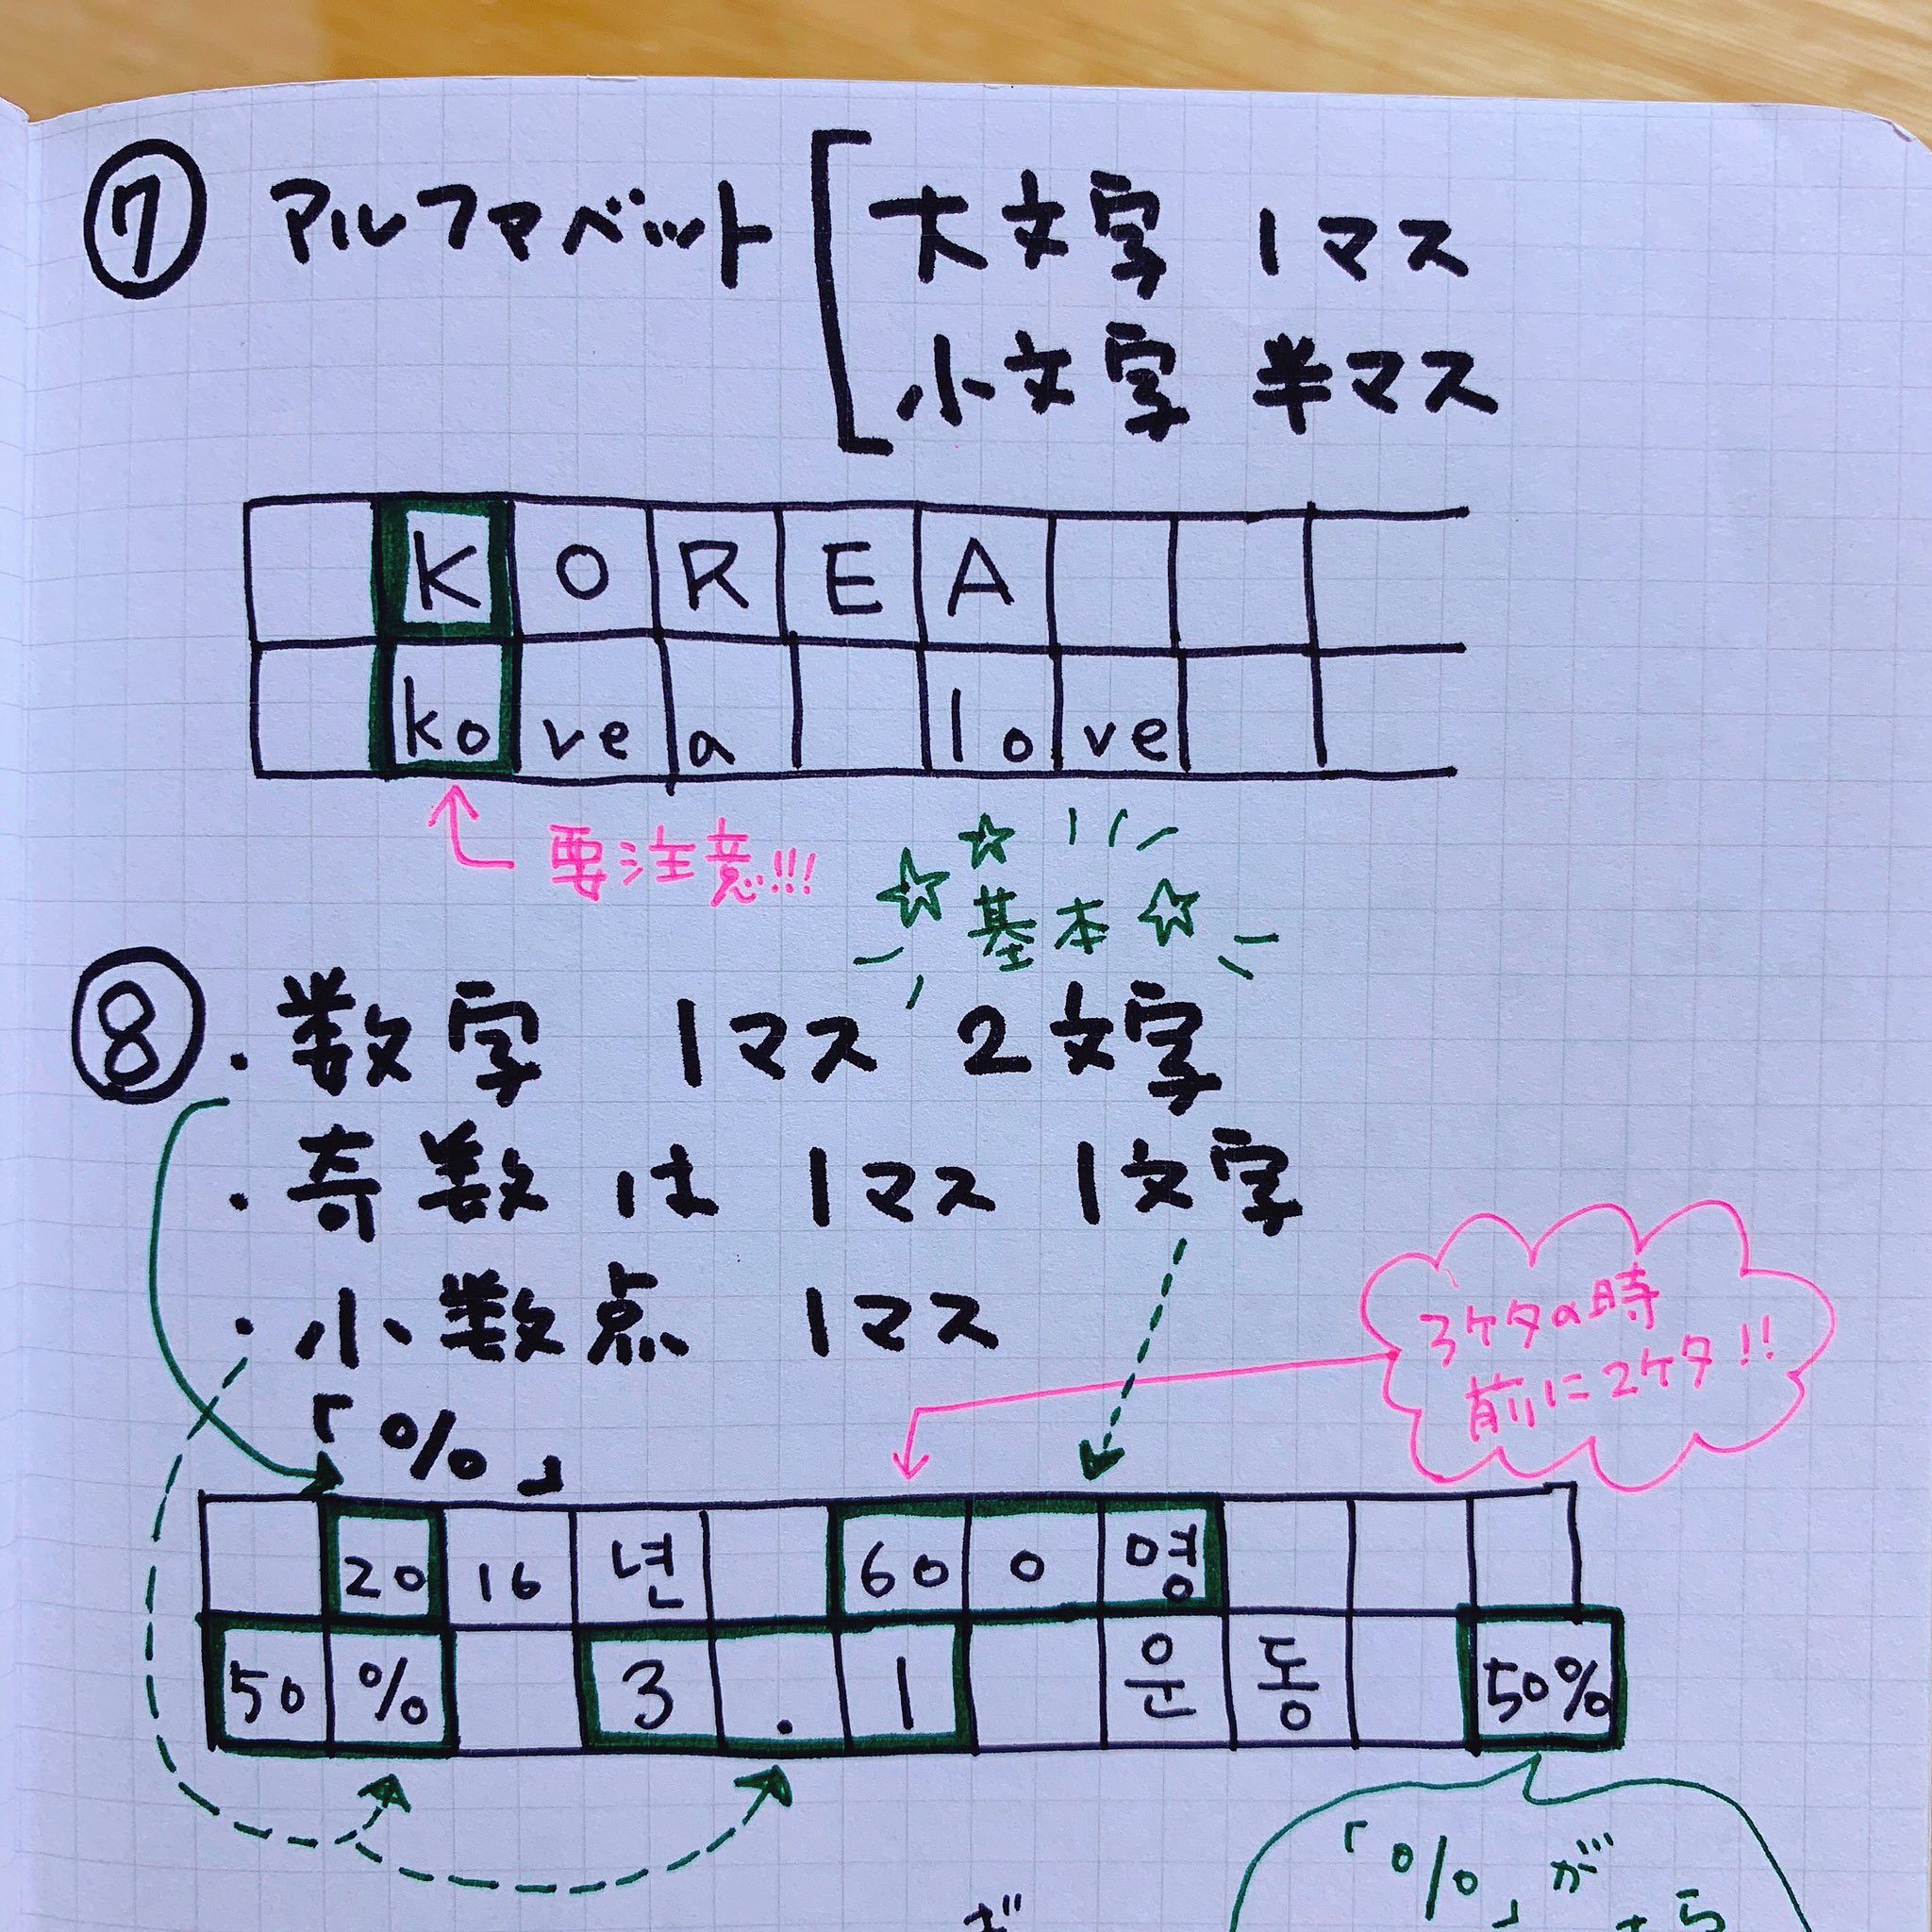 ⑦ アルファベット
大文字 1マス
小文字 半マス
K O R E A
ko re a lo ve
要注意!!!
基本
⑧ ・数字 1マス 2文字
・奇数は 1マス 1文字
・小数点 1マス
「%」
3ケタの時
前に2ケタ!!
20 16 년 60 0 명
50 % 3 . 1 운 동 50%
「%」が